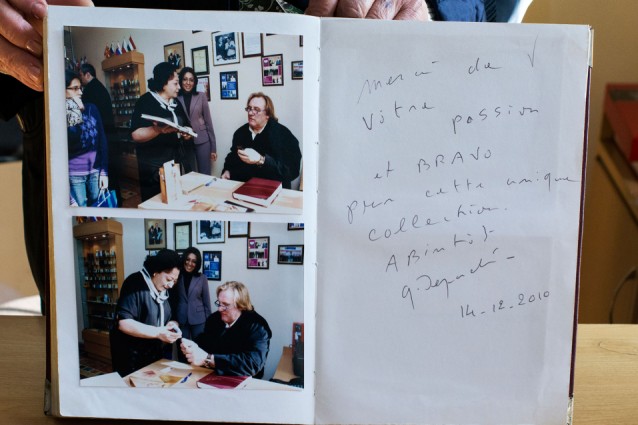 Merci de
Votre passion
et BRAVO
pour cette unique
collection.
A Bientôt
14-12-2010